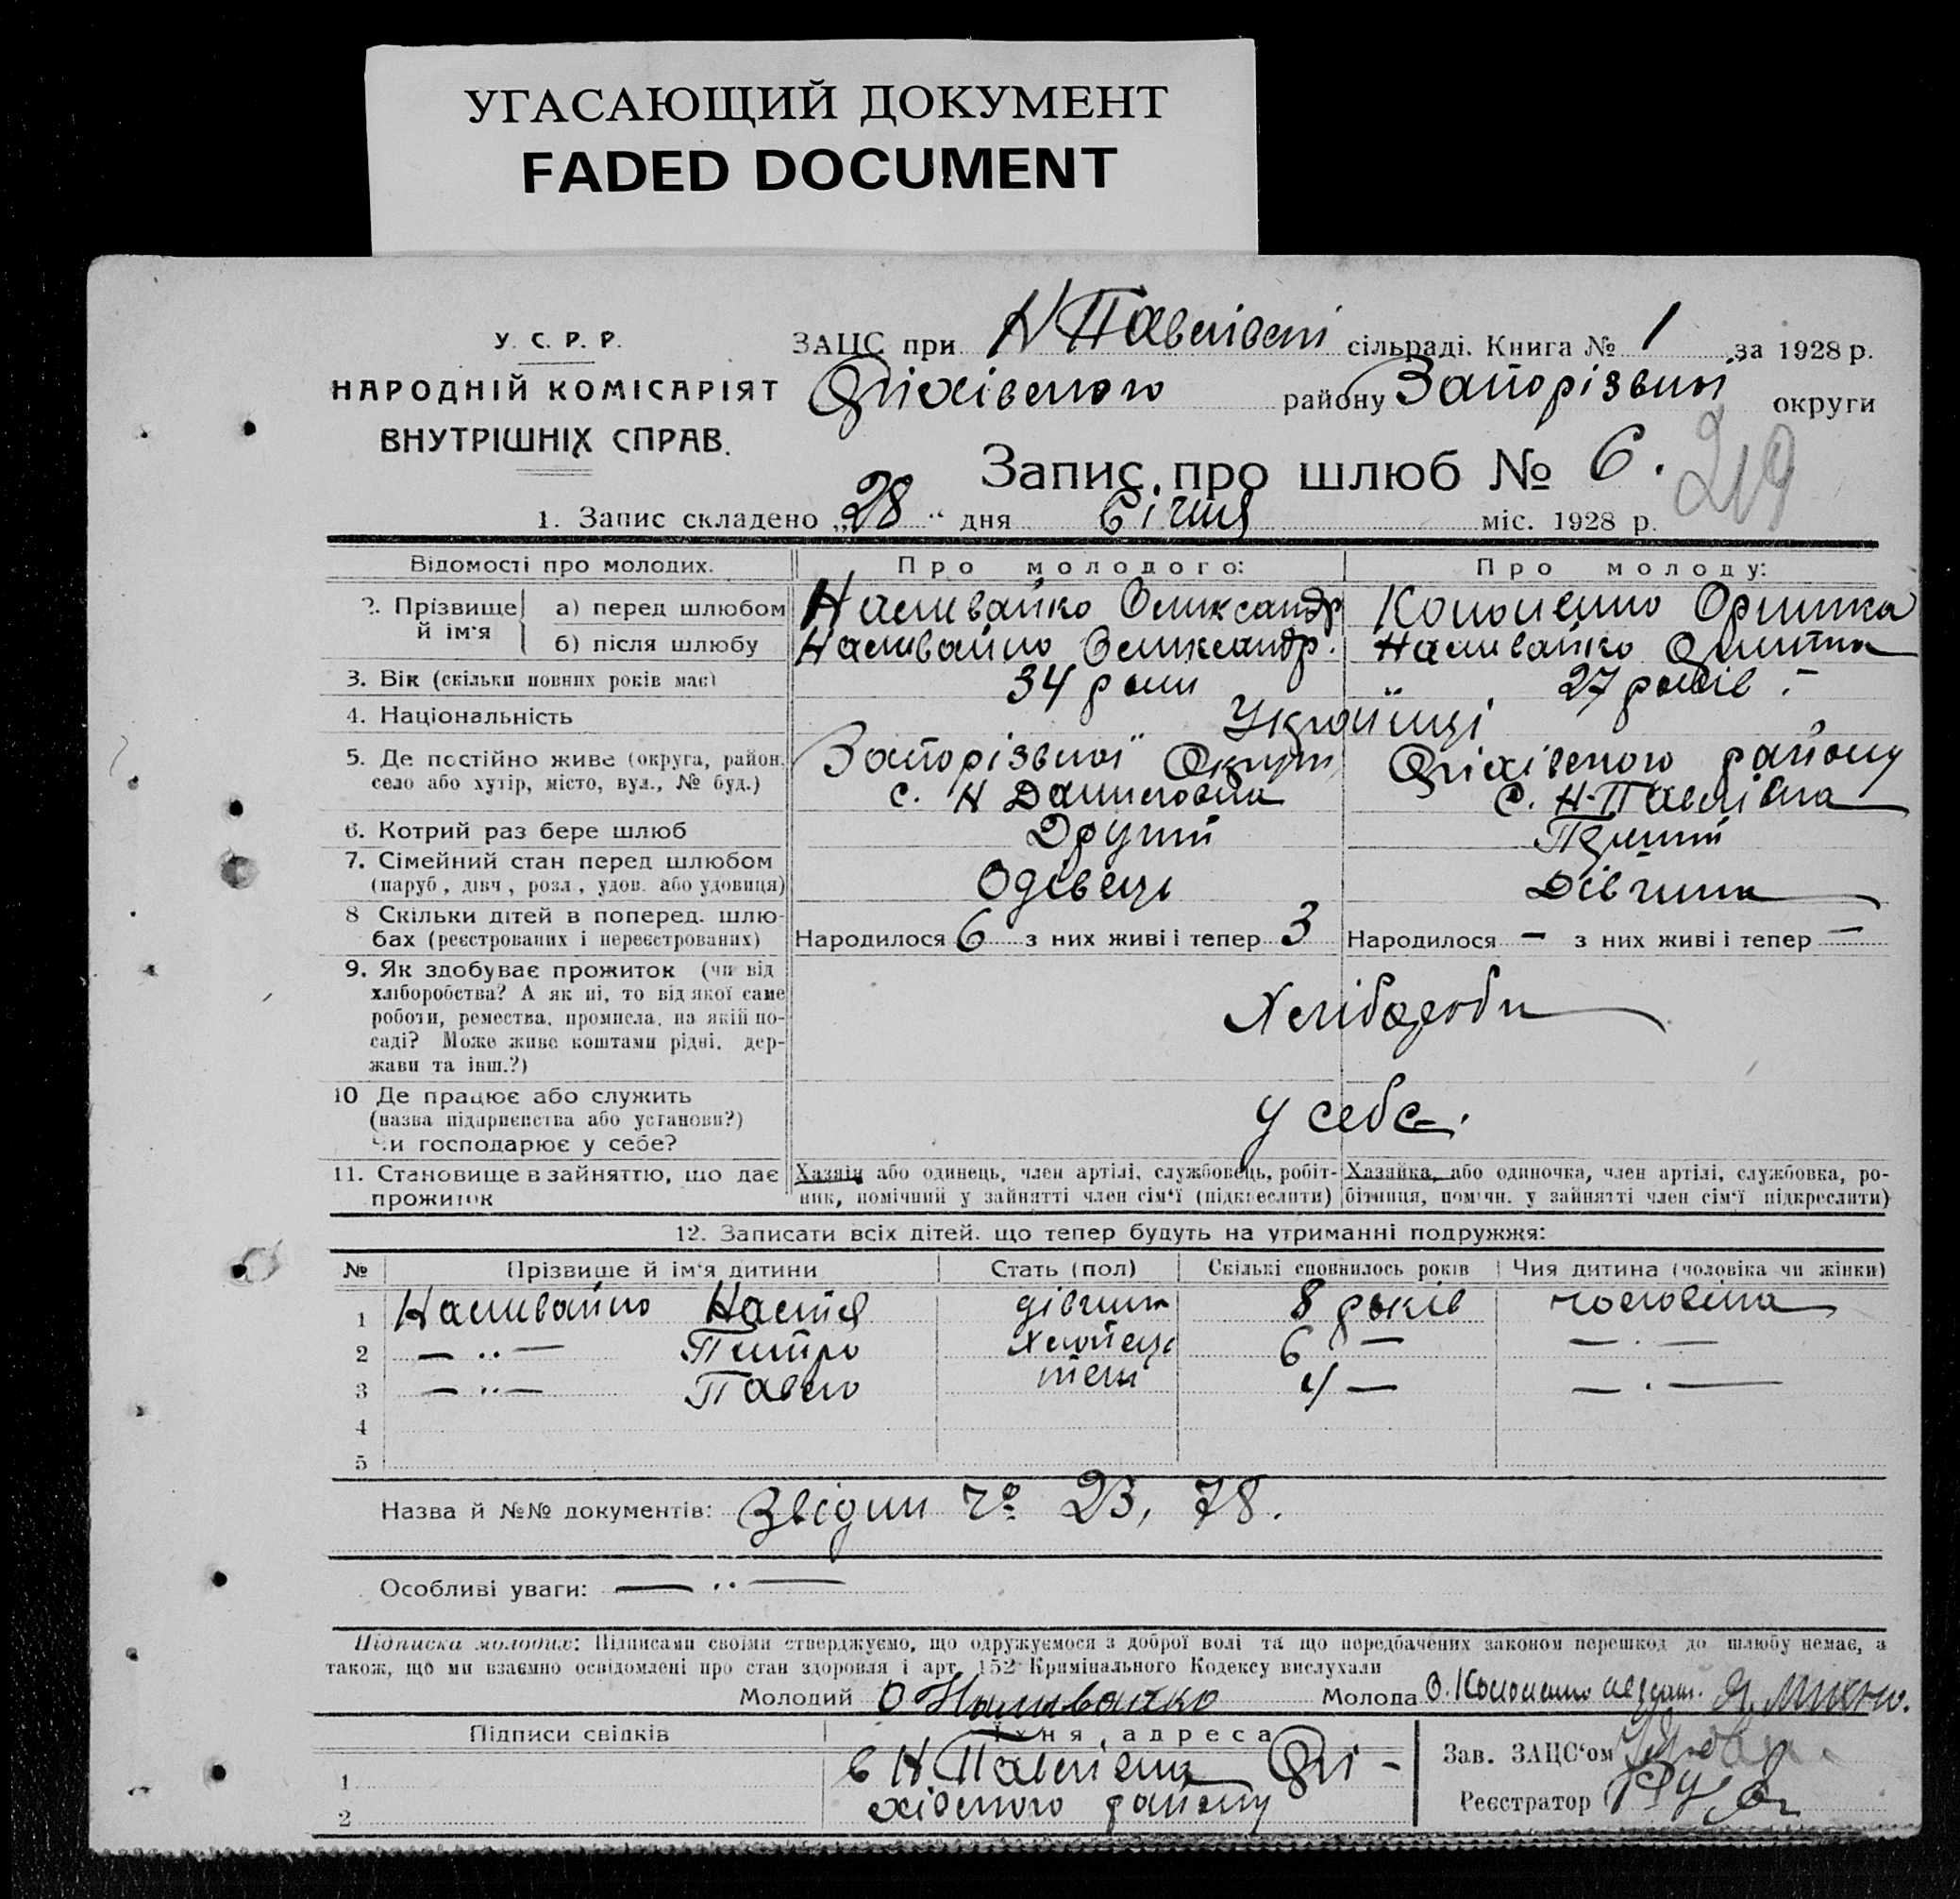 УГАСАЮЩИЙ ДОКУМЕНТ
FADED DOCUMENT
У. С. Р. Р.
НАРОДНІЙ КОМІСАРІЯТ
ВНУТРІШНІХ СПРАВ.
ЗАЦС при Н Павлівскі сільраді. Книга № 1 за 1928 р.
Оріхівского району Запорізької округи
Запис про шлюб № 6.
219
1. Запис складено „28“ дня Січня міс. 1928 р.
Відомості про молодих. Про молодого: Про молоду:
2. Прізвище й ім'я а) перед шлюбом Наливайко Олександр Кононенко Оришка
б) після шлюбу Наливайко Олександр. Наливайко Оришка
3. Вік (скільки повних років має) 34 роки " 27 років
4. Національність Українці
5. Де постійно живе (округа, район, Запорізької Округи Оріхівского району
село або хутір, місто, вул., № буд.) с. Н Даниловка С. Н-Павлівка
6. Котрий раз бере шлюб Другий Перший
7. Сімейний стан перед шлюбом Одівець Дівчина
(паруб, дівч, розл, удов. або удовиця)
8 Скільки дітей в поперед. шлю-
бах (реєстрованих і нереєстрованих) Народилося 6 з них живі і тепер 3 Народилося — з них живі і тепер —
9. Як здобуває прожиток (чи від
хліборобства? А як ні, то від якої саме
роботи, ремества, промисла, на якій по-
саді? Може живе коштами рідні, дер-
жави та інш.?)
Хлібороби
10 Де працює або служить
(назва підприємства або установи?)
Чи господарює у себе?
у себе.
11. Становище в зайняттю, що дає Хазяїн або одинець, член артілі, службовець, робіт- Хазяйка, або одиночка, член артілі, службовка, ро-
прожиток ник, помічний у зайнятті член сім'ї (підкреслити) бітниця, помічн. у зайнятті член сім'ї підкреслити)
12. Записати всіх дітей, що тепер будуть на утриманні подружжя:
№ Прізвище й ім'я дитини Стать (пол) Скількі сповнилось років Чия дитина (чоловіка чи жінки)
1 Наливайко Настя дівчина 8 років чоловіка
2 — .. — Питро Хлопець 6 — — . —
3 — .. — Павло теж 4 — — . —
4
5
Назва й №№ документів: Звідки Чо 23, 78.
Особливі уваги: — .. —
Підписка молодих: Підписами своїми стверджуємо, що одружуємося з доброї волі та що передбачених законом перешкод до шлюбу немає, а
також, що ми взаємно освідомлені про стан здоровля і арт. 152 Кримінального Кодексу вислухали
Молодий О Наливайко Молода О. Кононенко
Підписи свідків Їхня адреса
1 с Н Павлівка Орі-
2 хівского району
Зав. ЗАЦС'ом
Реєстратор